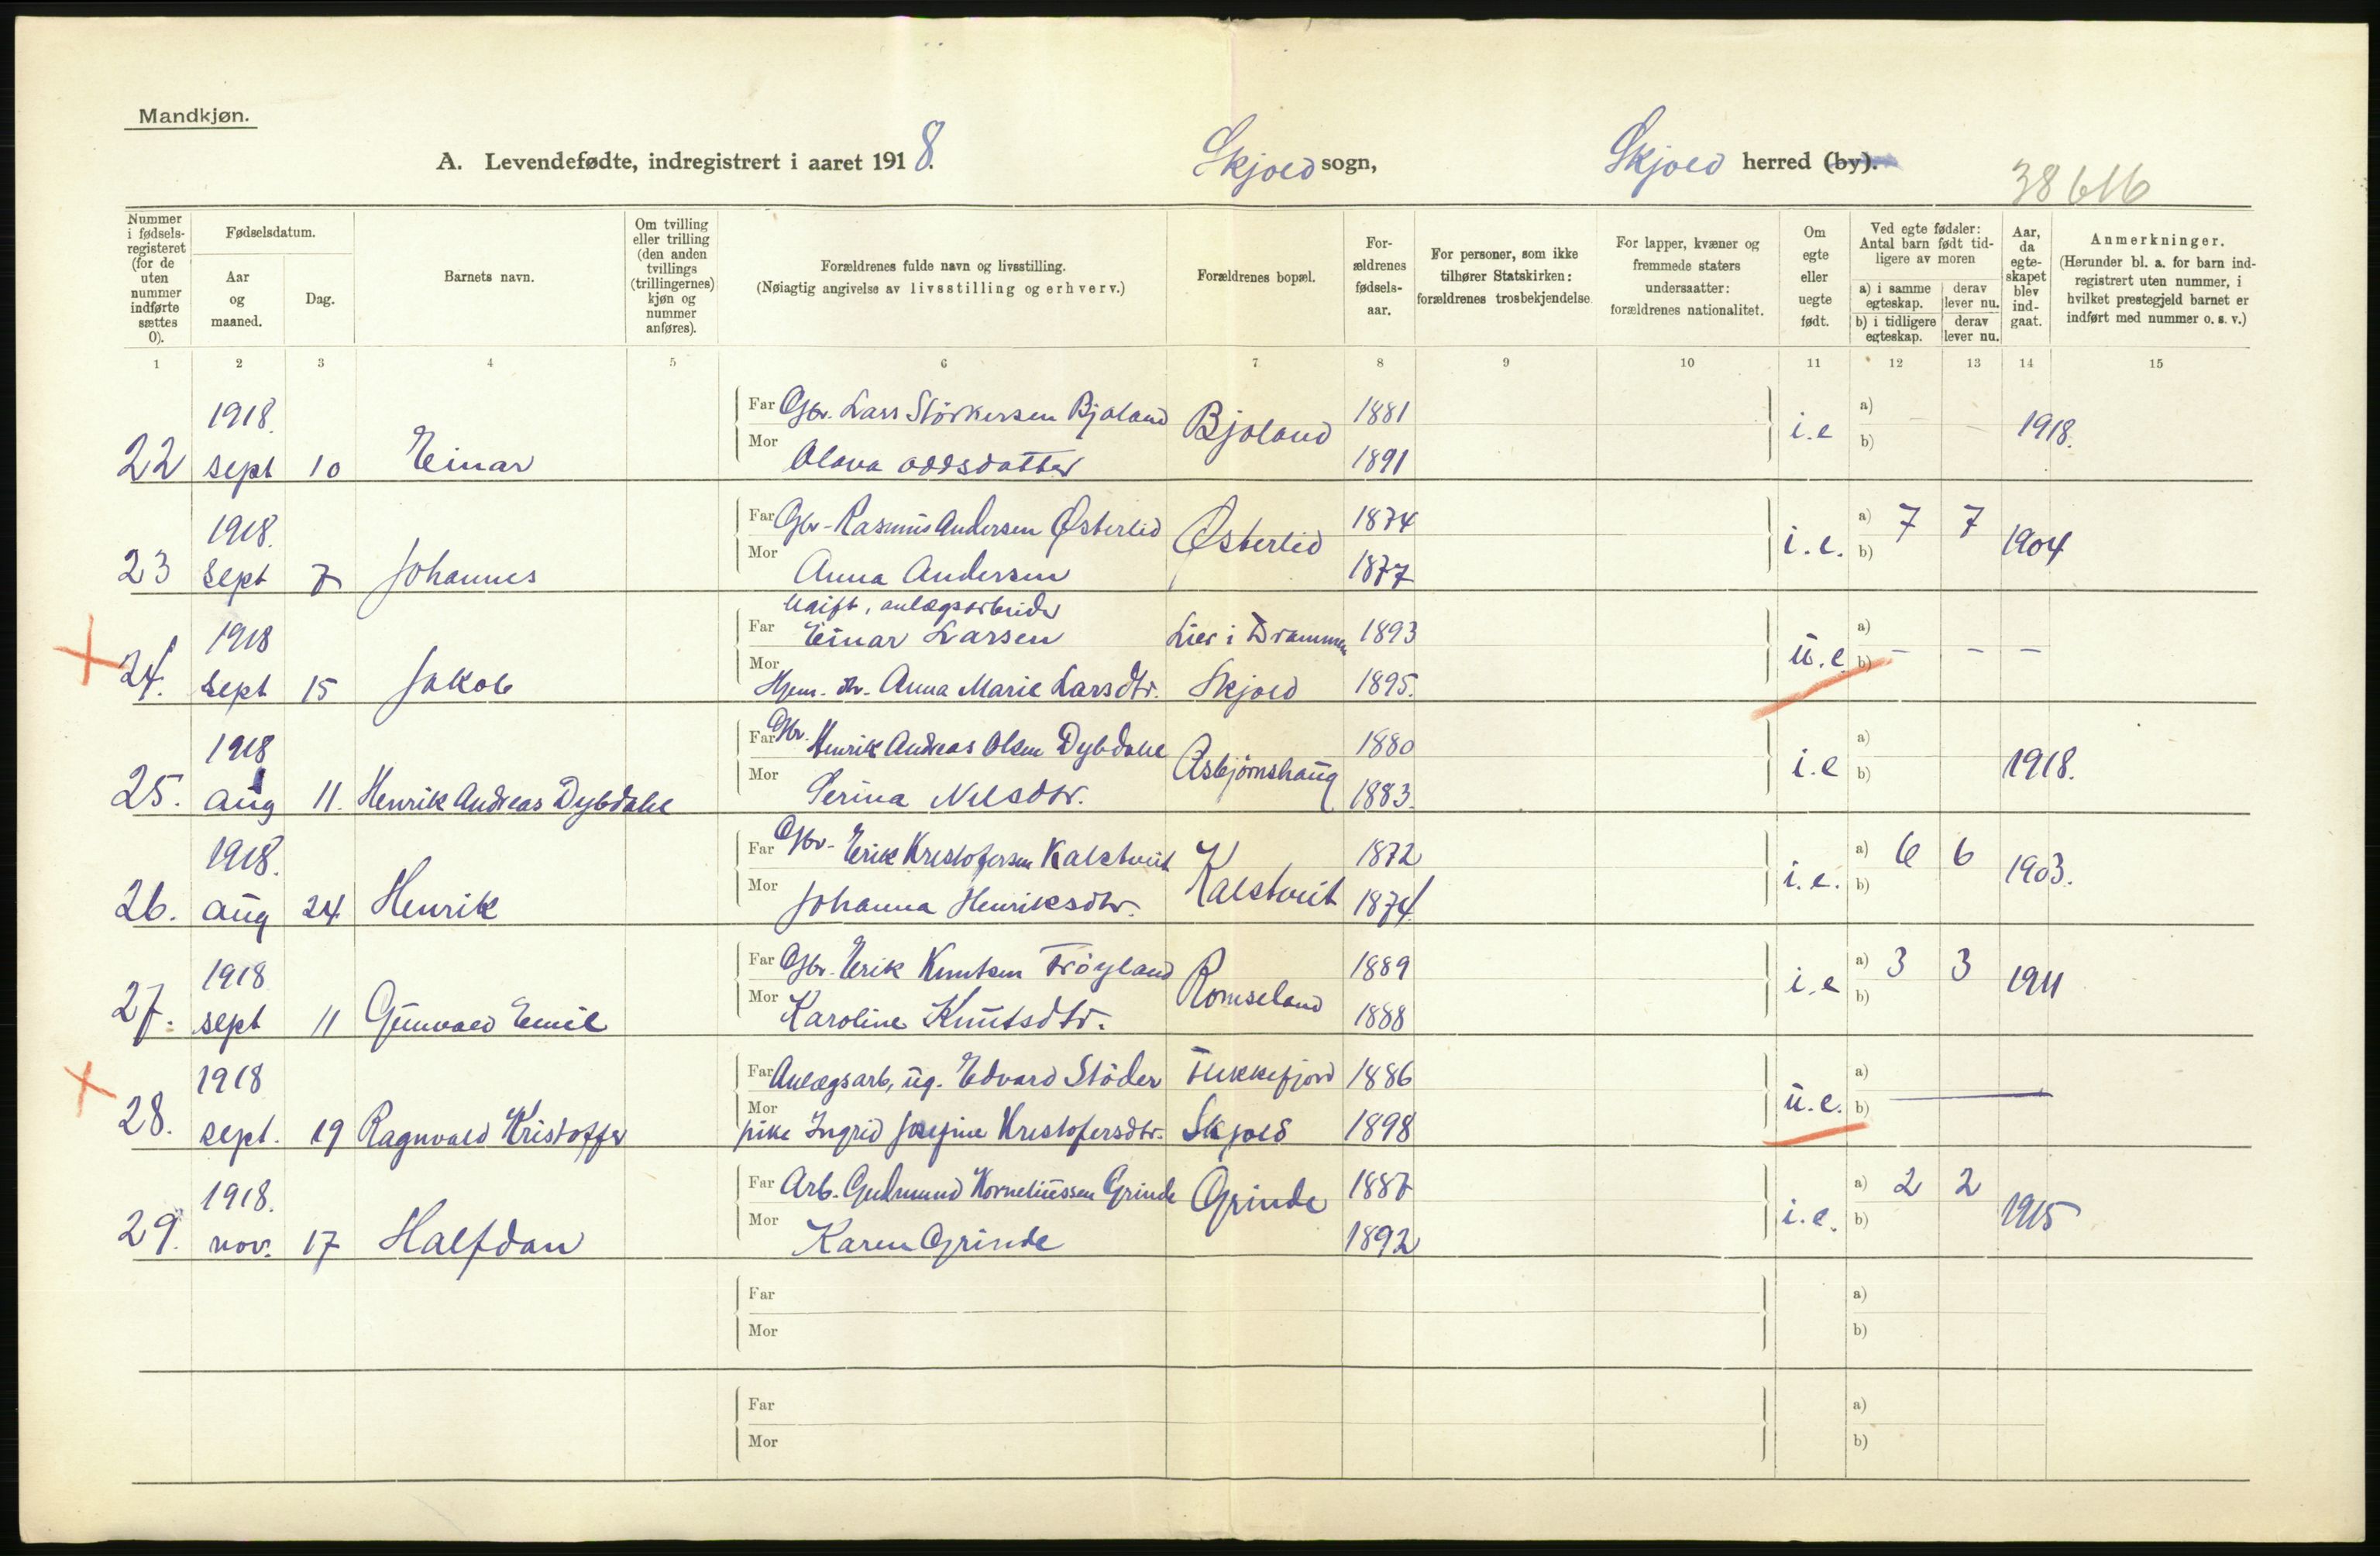 Mandkjøn.
A. Levendefødte, indregistrert i aaret 1918. Skjold sogn, Skjold herred (by).
38616
Nummer i fødselsregisteret (for de uten nummer indførte sættes 0).
Fødselsdatum.
Aar og maaned.
Dag.
Barnets navn.
Om tvilling eller trilling (den anden tvillings (trillingernes) kjøn og nummer anføres).
Forældrenes fulde navn og livsstilling.
(Nøiagtig angivelse av livsstilling og erhverv.)
Forældrenes bopæl.
Forældrenes fødselsaar.
For personer, som ikke tilhører Statskirken: forældrenes trosbekjendelse.
For lapper, kvæner og fremmede staters undersaatter: forældrenes nationalitet.
Om egte eller uegte født.
Ved egte fødsler: Antal barn født tidligere av moren
a) i samme egteskap. derav lever nu.
b) i tidligere egteskap. derav lever nu.
Aar, da egteskapet blev indgaat.
Anmerkninger.
(Herunder bl. a. for barn indregistrert uten nummer, i hvilket prestegjeld barnet er indført med nummer o. s. v.)
1 2 3 4 5 6 7 8 9 10 11 12 13 14 15
1918. Far Gbr. Lars Störkersen Bjoland Bjoland 1881 i.e a) - - 1918.
22 sept 10 Einar Mor Olava Oddsdatter 1891 b)
1918. Far Gbr- Rasmus Andersen Østerlid Østerlid 1874 i.e. a) 7 7 1904
23 sept 7 Johannes Mor Anna Andersen 1877 b)
Ugift, anlægsarbeider
1918 Far Einar Larsen Lier i Drammen 1893 u.e. a)
24. sept 15 Jakob Mor Hjem. dtr. Anna Marie Larsdtr. Skjold 1895. b) - - -
1918 Far Gbr. Henrik Andreas Olsen Dybdahl Asbjörnshaug 1880 i.e a) 1918.
25. aug 11. Henrik Andreas Dybdahl Mor Serina Nilsdtr. 1883. b)
1918. Far Gbr- Erik Kristofersen Kalstveit Kalstveit 1872 i.e. a) 6 6 1903.
26. aug 24 Henrik Mor Johanna Henriksdtr. 1874. b)
1918 Far Gbr. Erik Knutsen Fröyland Romseland 1889 i.e a) 3 3 1911
27. sept 11 Gunvald Emil Mor Karoline Knutsdtr. 1888 b)
1918 Far Anlægsarb, ug. Edvard Stöder Flekkefjord 1886 u.e. a)
28. sept. 19 Ragnvald Kristoffer Mor pike Ingrid Josefine Kristofersdtr. Skjold 1898 b)
1918. Far Arb. Gudmund Korneliussen Grinde Grinde 1887 i.e. a) 2 2 1915
29. nov. 17 Halfdan Mor Karen Grinde 1892 b)
Far a)
Mor b)
Far a)
Mor b)